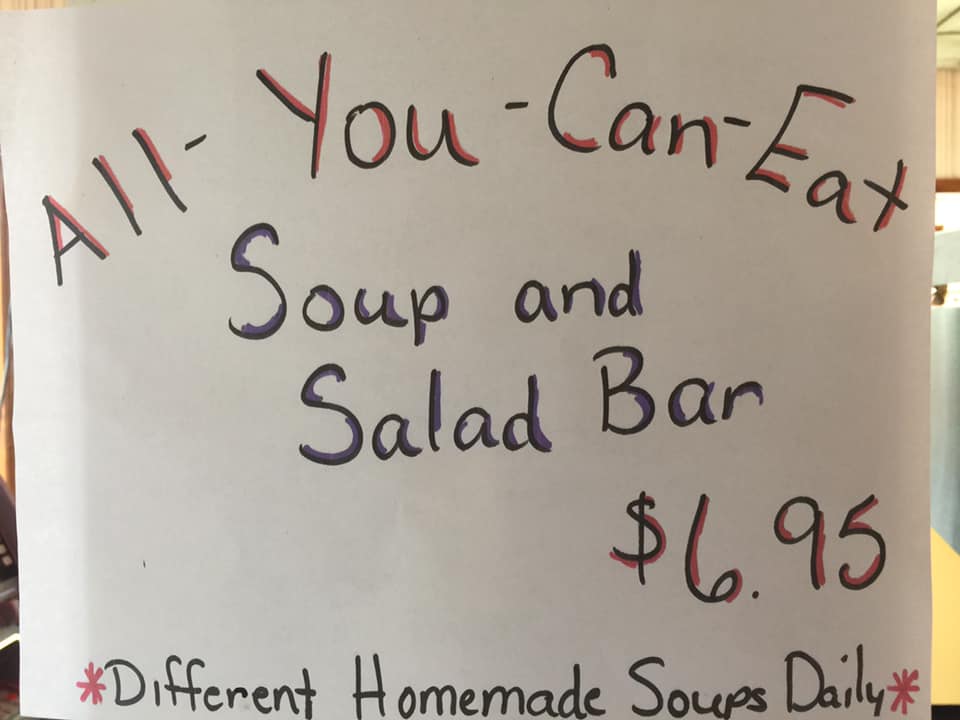 All-You-Can-Eat
Soup and
Salad Bar
$6.95
*Different Homemade Soups Daily*